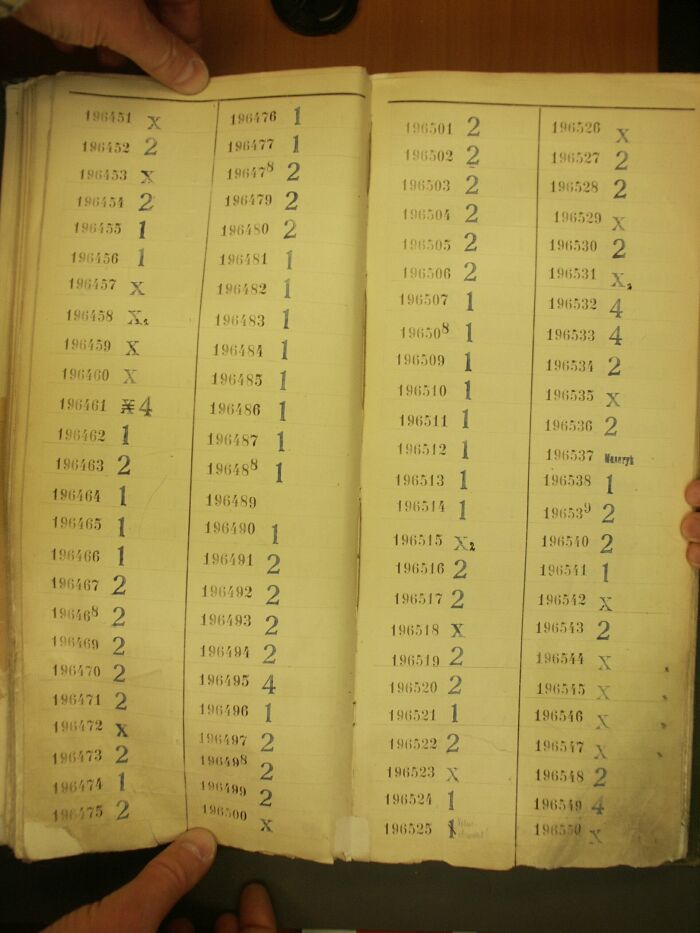 196451 X
196452 2
196453 X
196454 2
196455 1
196456 1
196457 X
196458 X1
196459 X
196460 X
196461 X 4
196462 1
196463 2
196464 1
196465 1
196466 1
196467 2
196468 2
196469 2
196470 2
196471 2
196472 X
196473 2
196474 1
196475 2
196476 1
196477 1
196478 2
196479 2
196480 2
196481 1
196482 1
196483 1
196484 1
196485 1
196486 1
196487 1
196488 1
196489
196490 1
196491 2
196492 2
196493 2
196494 2
196495 4
196496 1
196497 2
196498 2
196499 2
196500 X
196501 2
196502 2
196503 2
196504 2
196505 2
196506 2
196507 1
196508 1
196509 1
196510 1
196511 1
196512 1
196513 1
196514 1
196515 X2
196516 2
196517 2
196518 X
196519 2
196520 2
196521 1
196522 2
196523 X
196524 1
196525 1
196526 X
196527 2
196528 2
196529 X
196530 2
196531 X2
196532 4
196533 4
196534 2
196535 X
196536 2
196537
196538 1
196539 2
196540 2
196541 1
196542 X
196543 2
196544 X
196545 X
196546 X
196547 X
196548 2
196549 4
196550 X